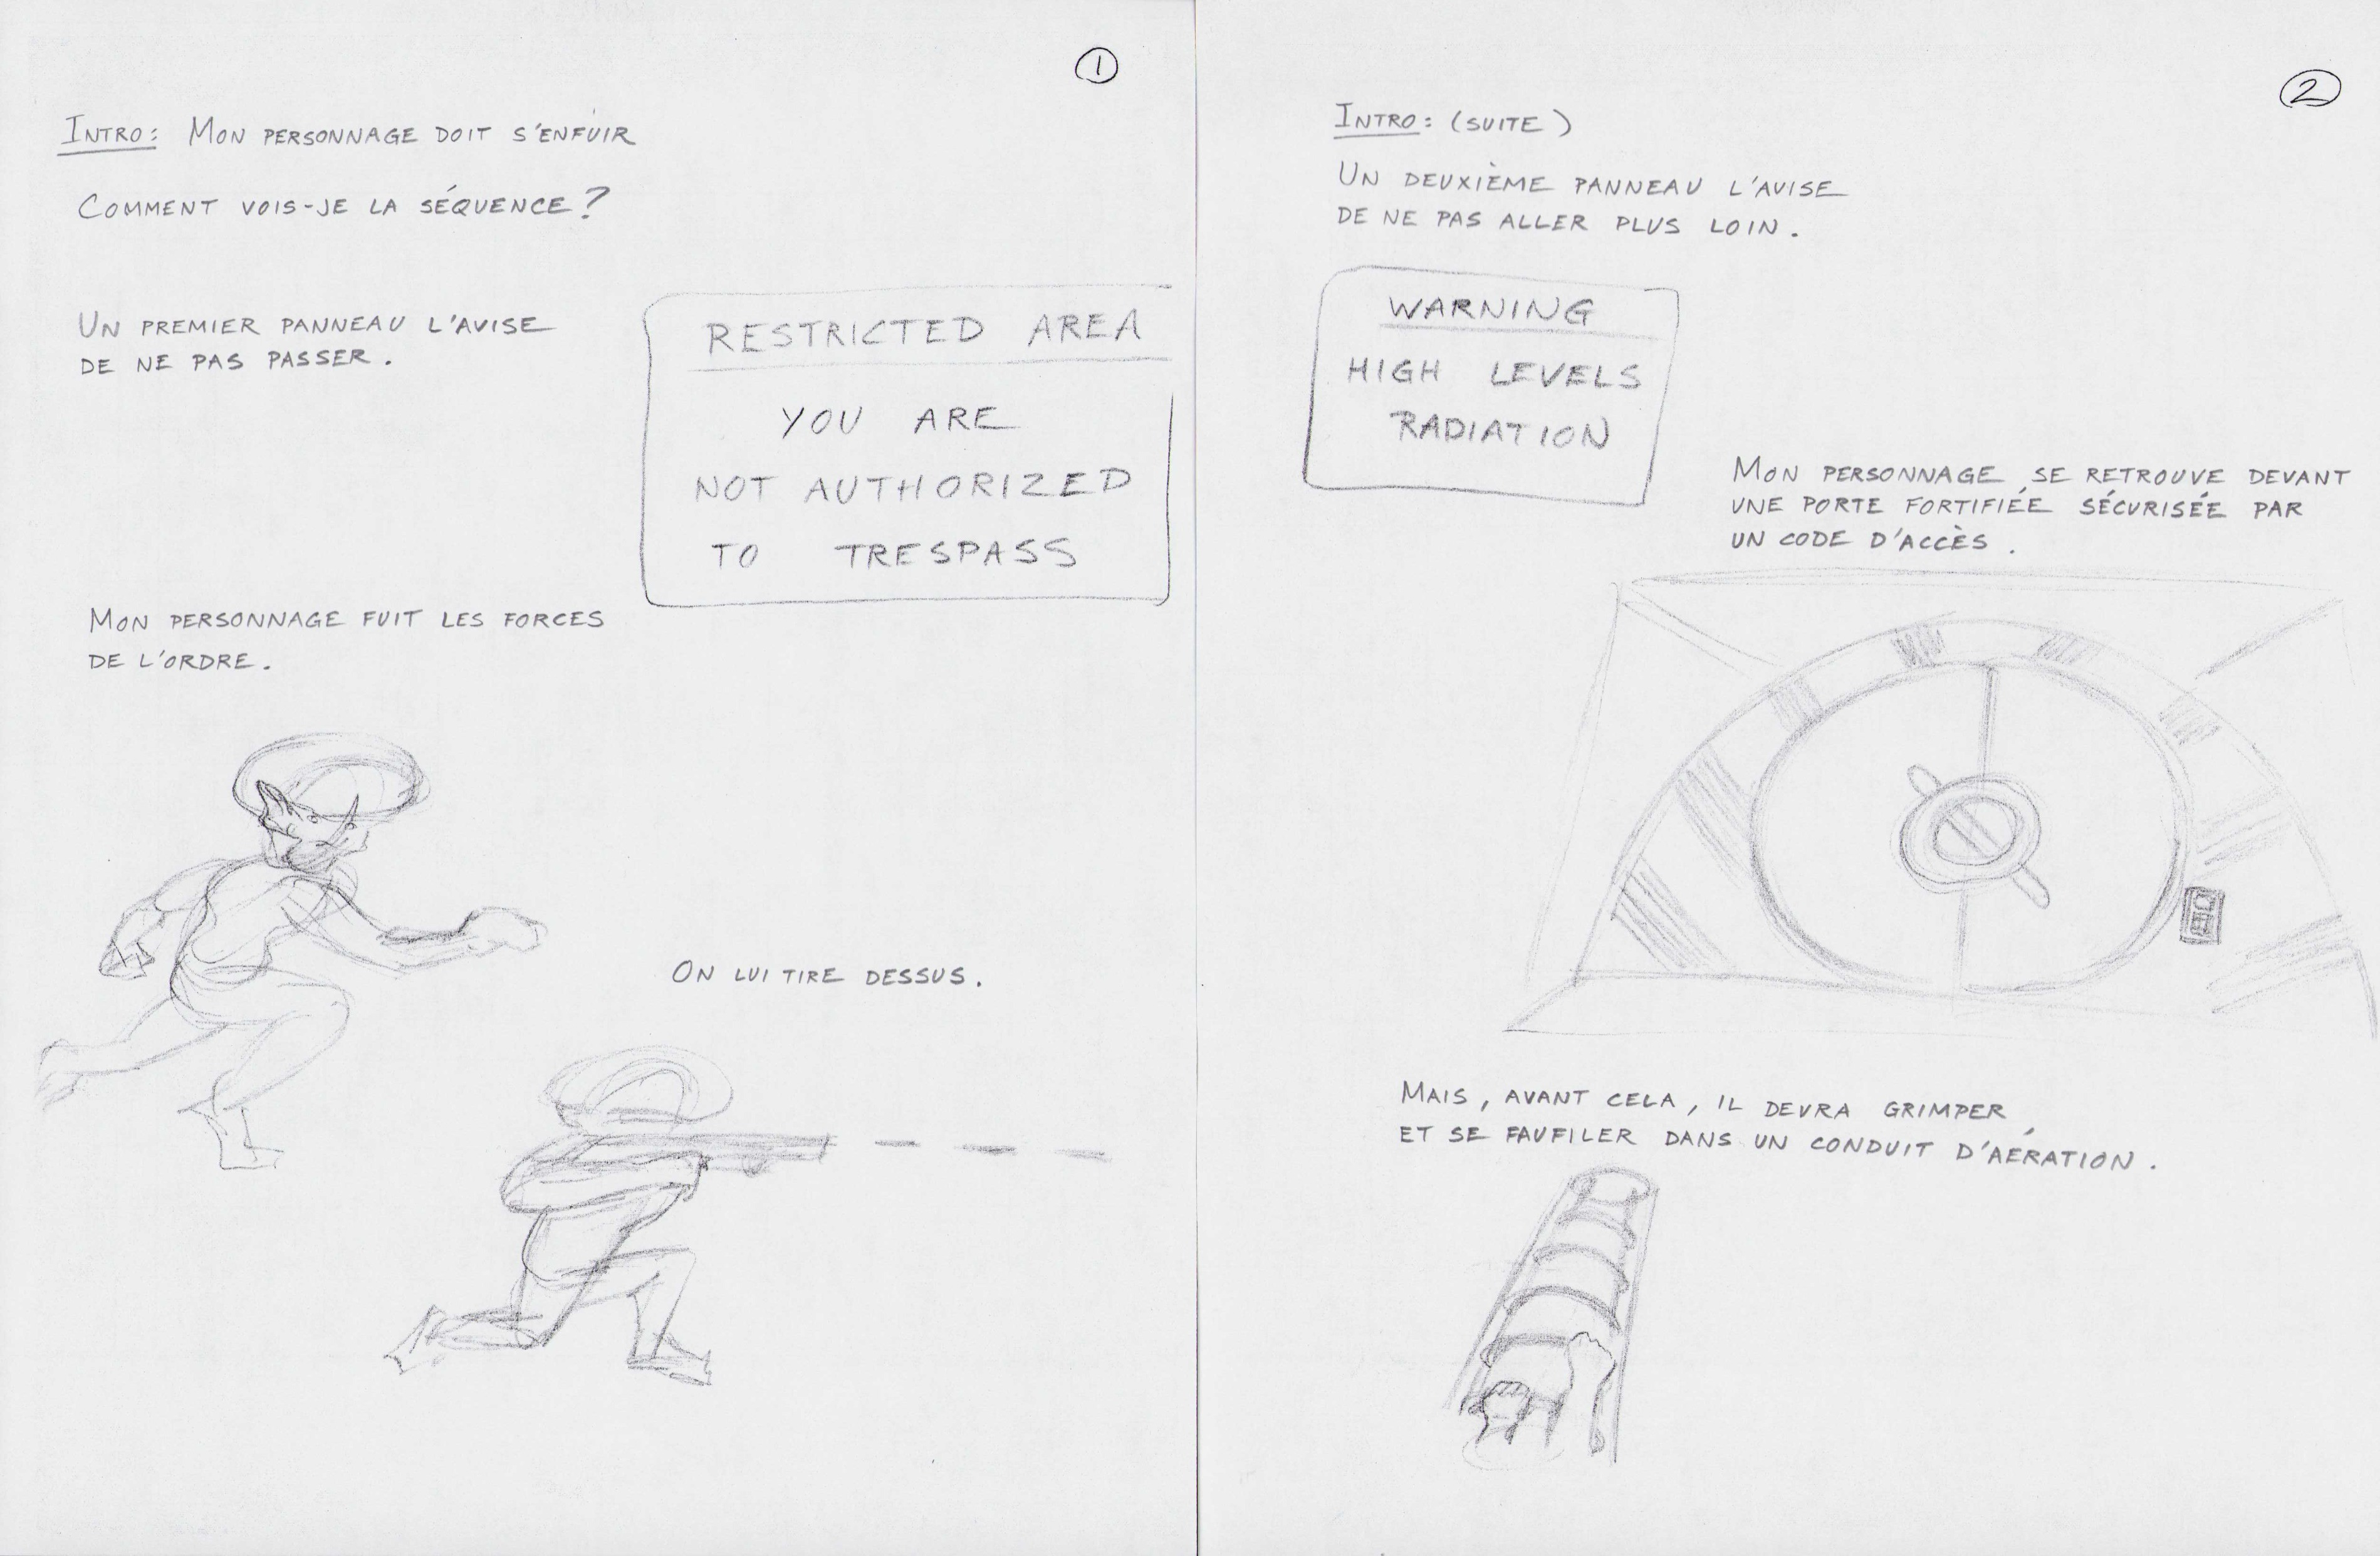 ①
INTRO: MON PERSONNAGE DOIT S'ENFUIR
COMMENT VOIS-JE LA SÉQUENCE?
UN PREMIER PANNEAU L'AVISE
DE NE PAS PASSER.
RESTRICTED AREA
YOU ARE
NOT AUTHORIZED
TO TRESPASS
MON PERSONNAGE FUIT LES FORCES
DE L'ORDRE.
ON LUI TIRE DESSUS.
②
INTRO: (SUITE)
UN DEUXIÈME PANNEAU L'AVISE
DE NE PAS ALLER PLUS LOIN.
WARNING
HIGH LEVELS
RADIATION
MON PERSONNAGE SE RETROUVE DEVANT
UNE PORTE FORTIFIÉE SÉCURISÉE PAR
UN CODE D'ACCÈS.
MAIS, AVANT CELA, IL DEVRA GRIMPER
ET SE FAUFILER DANS UN CONDUIT D'AÉRATION.